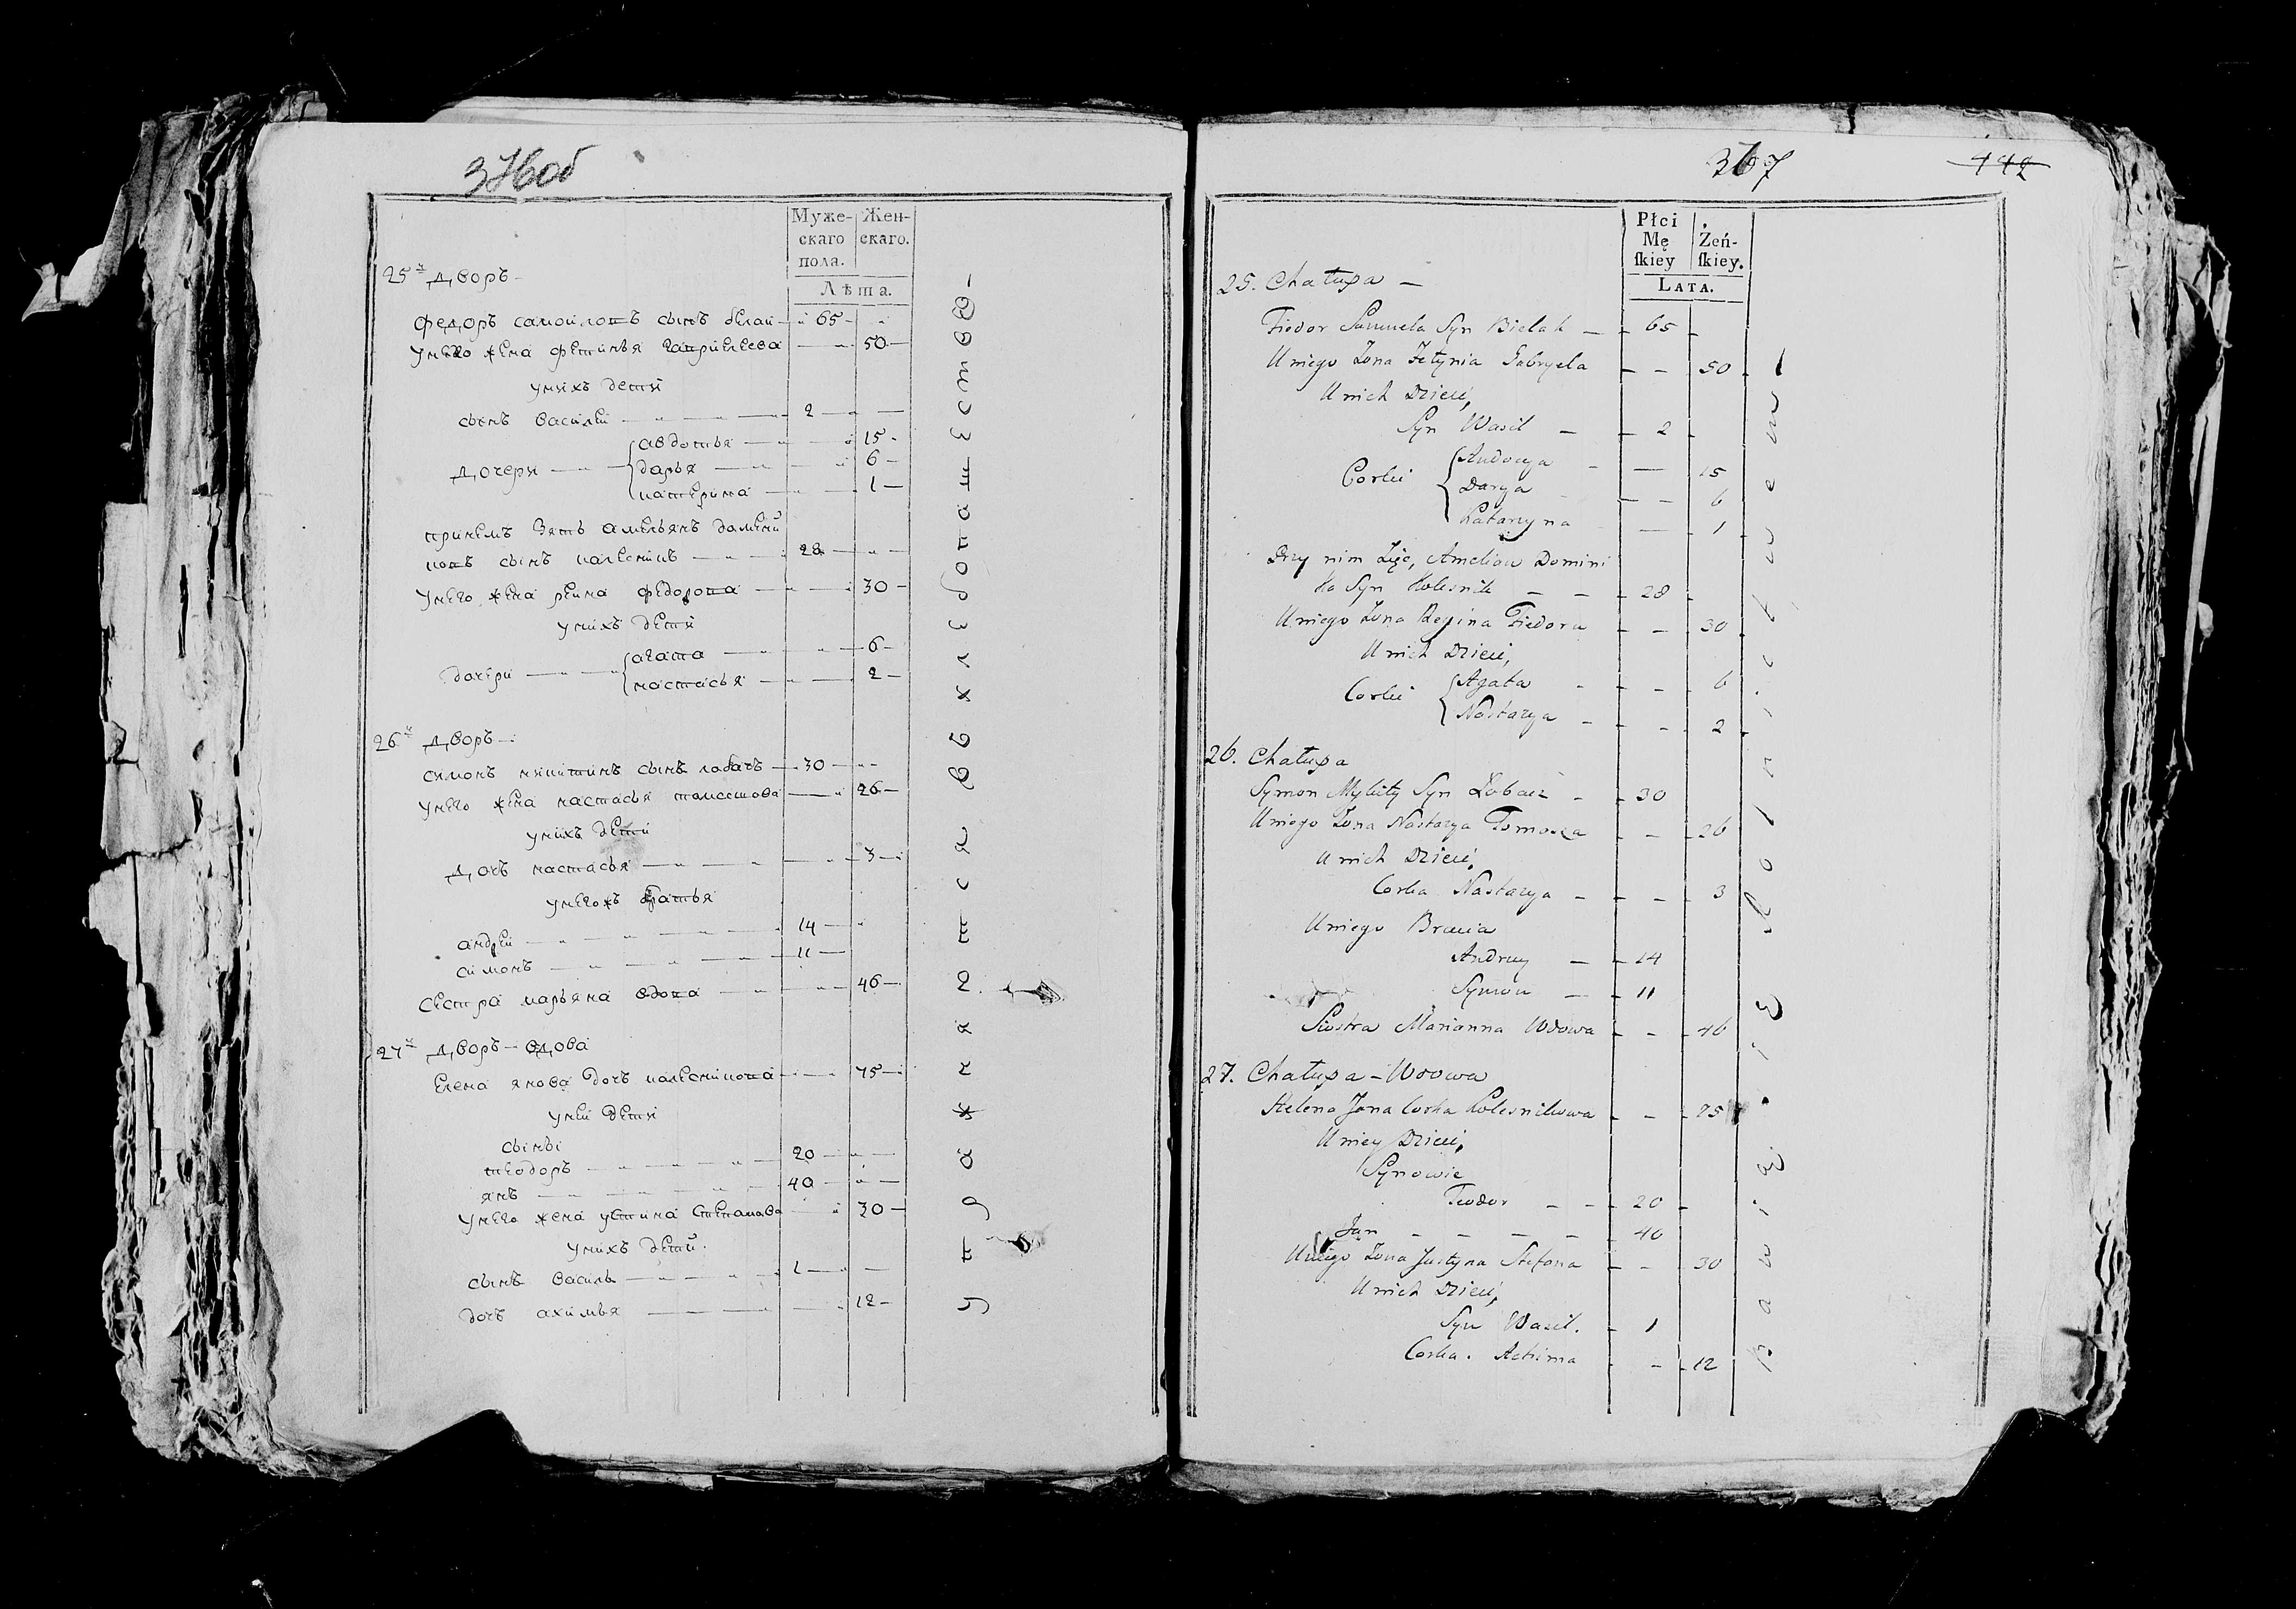 376об
Муже-
скаго
пола.
Жен-
скаго.
Лѣта.
25й дворъ
федоръ самойловъ сынъ белай 65
унего жена фетинья гаврилева 50
унихъ дети
сынъ василй 2
дочери авдотья 15
дарья 6
катерина 1
принемъ зять амельянъ домини
ковъ сынъ калесникъ 28
унего жена регина федорова 30
унихъ дети
дочери агата 6
настасья 2
26й дворъ
симонъ микитинъ сынъ лобачъ 30
унего жена настасья томашова 26
унихъ дети
дочь настасья 3
унегожъ братья
андрей 14
симонъ 11
сестра марьяна вдова 46
27й дворъ вдова
елена янова дочь калесникова 75
уней дети
сыны
теодоръ 20
янъ 40
унего жена устина степанова 30
унихъ дети
сынъ василь 1
дочь ахимья 12
367
442
Płci
Mę
skiey
Żeń-
skiey.
LATA.
25. Chałupa
Fiedor Samuela Syn Bielak 65
Uniego Żona Fetynia Gabryela 50
Unich Dzieci,
Syn Wasil 2
Corki Audocya 15
Darya 6
Katarzyna 1
Przy nim Zięć, Amelian Domini
ka Syn Kolesnik 28
Uniego Żona Regina Fiedora 30
Unich Dzieci,
Corki Agata 6
Nastazya 2
26. Chałupa
Symon Mykity Syn Łobacz 30
Uniego Żona Nastazya Tomasza 26
Unich Dzieci,
Corka Nastazya 3
Uniego Bracia
Andrzey 14
Symon 11
Siostra Marianna Wdowa 46
27. Chałupa - Wdowa
Helena Jana Corka Kolesnikowa 75
Uniey Dzieci,
Synowie
Teodor 20
Jan 40
Uniego Żona Justyna Stefana 30
Unich Dzieci,
Syn Wasil. 1
Corka. Achima 12